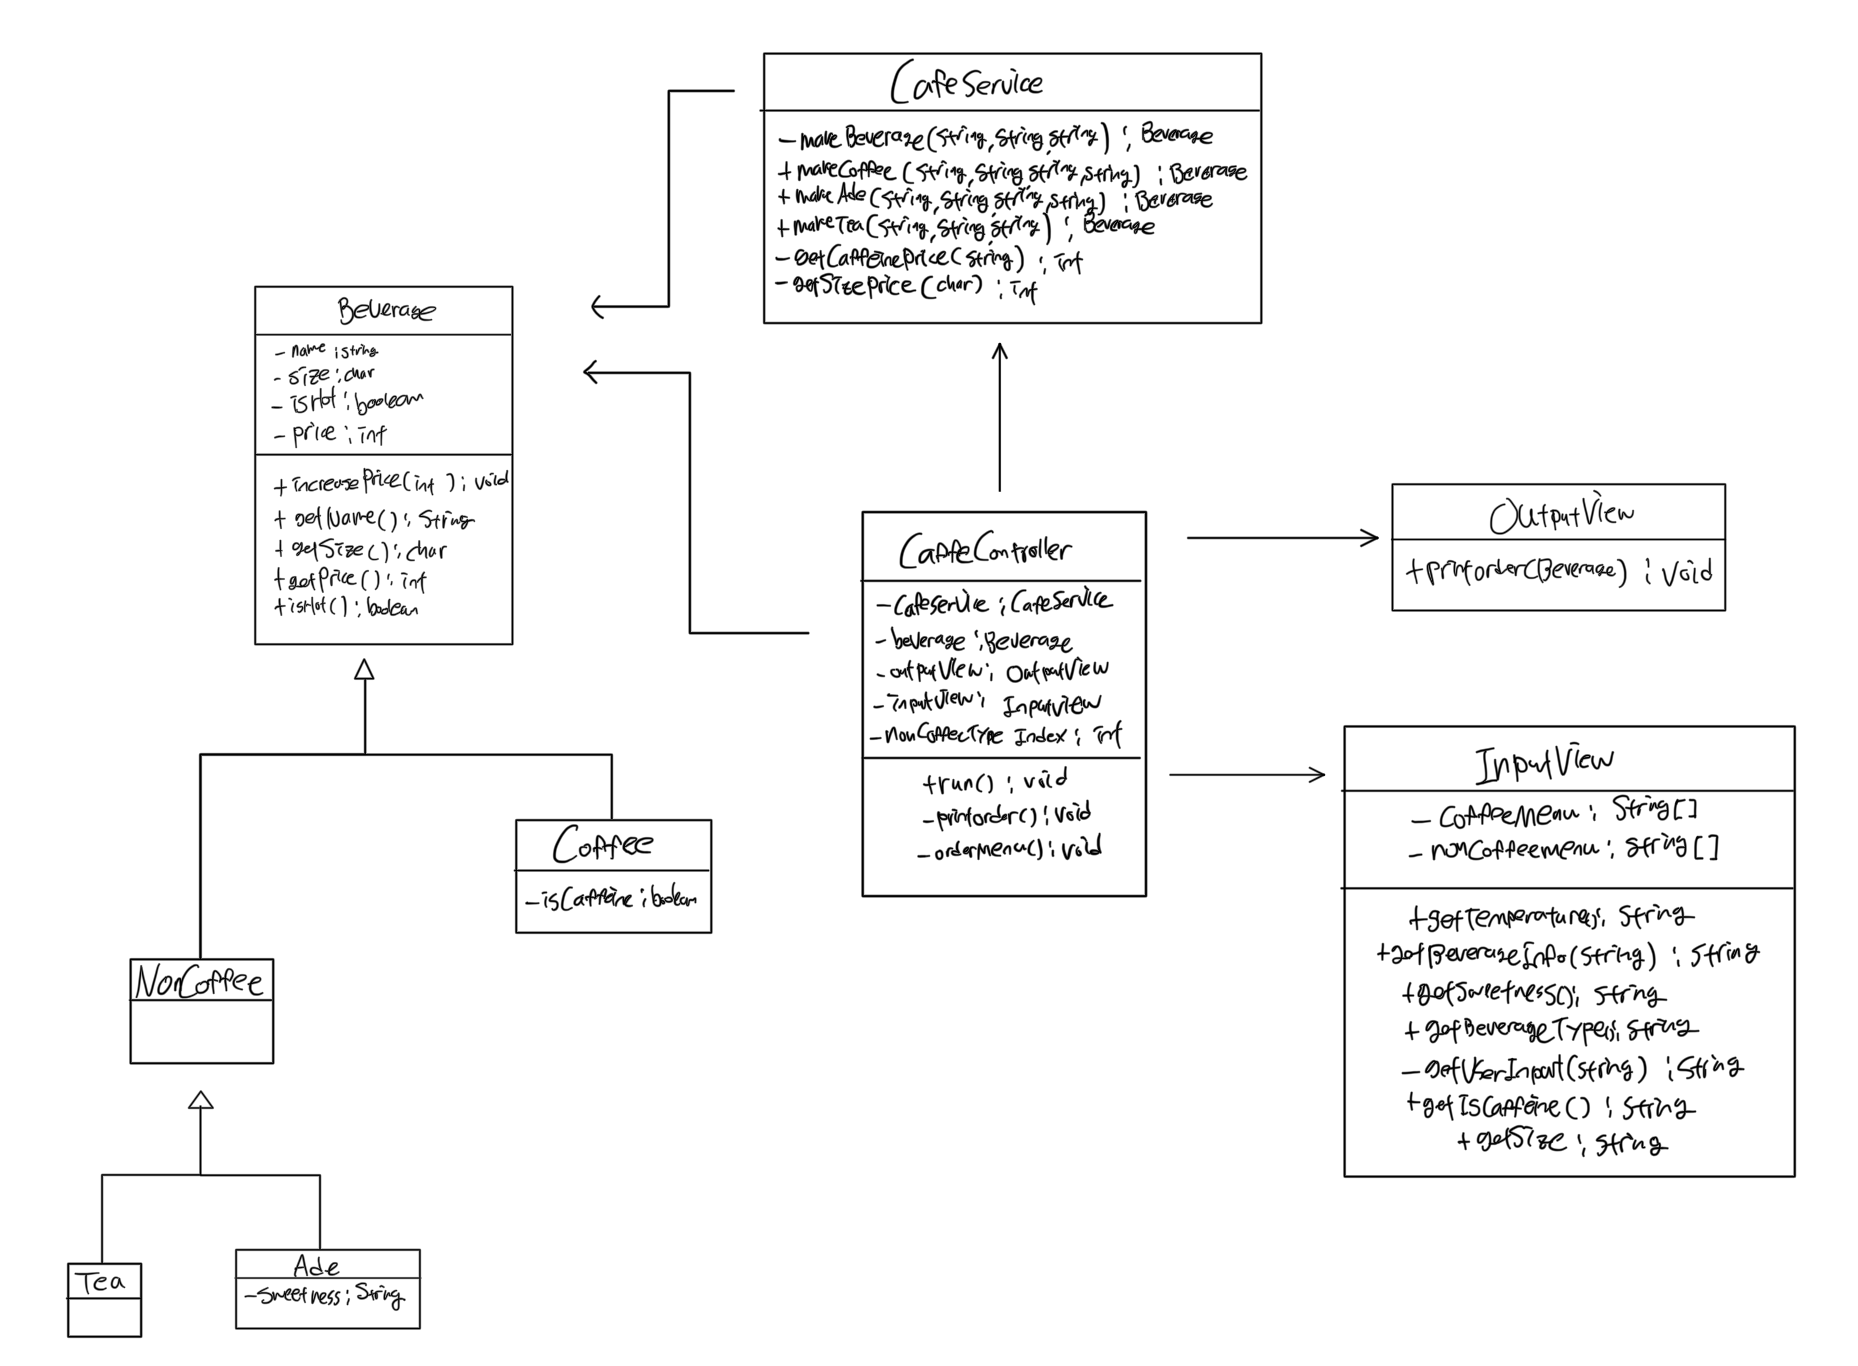 CafeService
- makeBeverage(String, String, String) : Beverage
+ makeCoffee (String, String, String, String) : Beverage
+ makeAde (String, String, String, String) : Beverage
+ makeTea (String, String, String) : Beverage
- getCaffeinePrice (String) : int
- getSizePrice (char) : int
Beverage
- name : String
- size : char
- isHot : boolean
- price : int
+ increasePrice(int ) : void
+ getName() : String
+ getSize() : char
+ getPrice() : int
+ isHot() : boolean
CaffeController
- Cafeservice : CafeService
- beverage : Beverage
- outputView : OutputView
- inputView : InputView
- nonCoffeeType Index : int
+ run() : void
- printorder() : void
- orderMenu() : void
OutputView
+ printorder(Beverage) : void
InputView
- CoffeeMenu : String[]
- nonCoffeemenu : String[]
+ getTemperature() : String
+ getBeverageInfo(String) : String
+ getSweetness() : String
+ getBeverageType() : String
- getUserInput(String) : String
+ getIsCaffeine() : String
+ getSize : String
Coffee
- isCaffeine : boolean
NonCoffee
Tea
Ade
- Sweetness : String